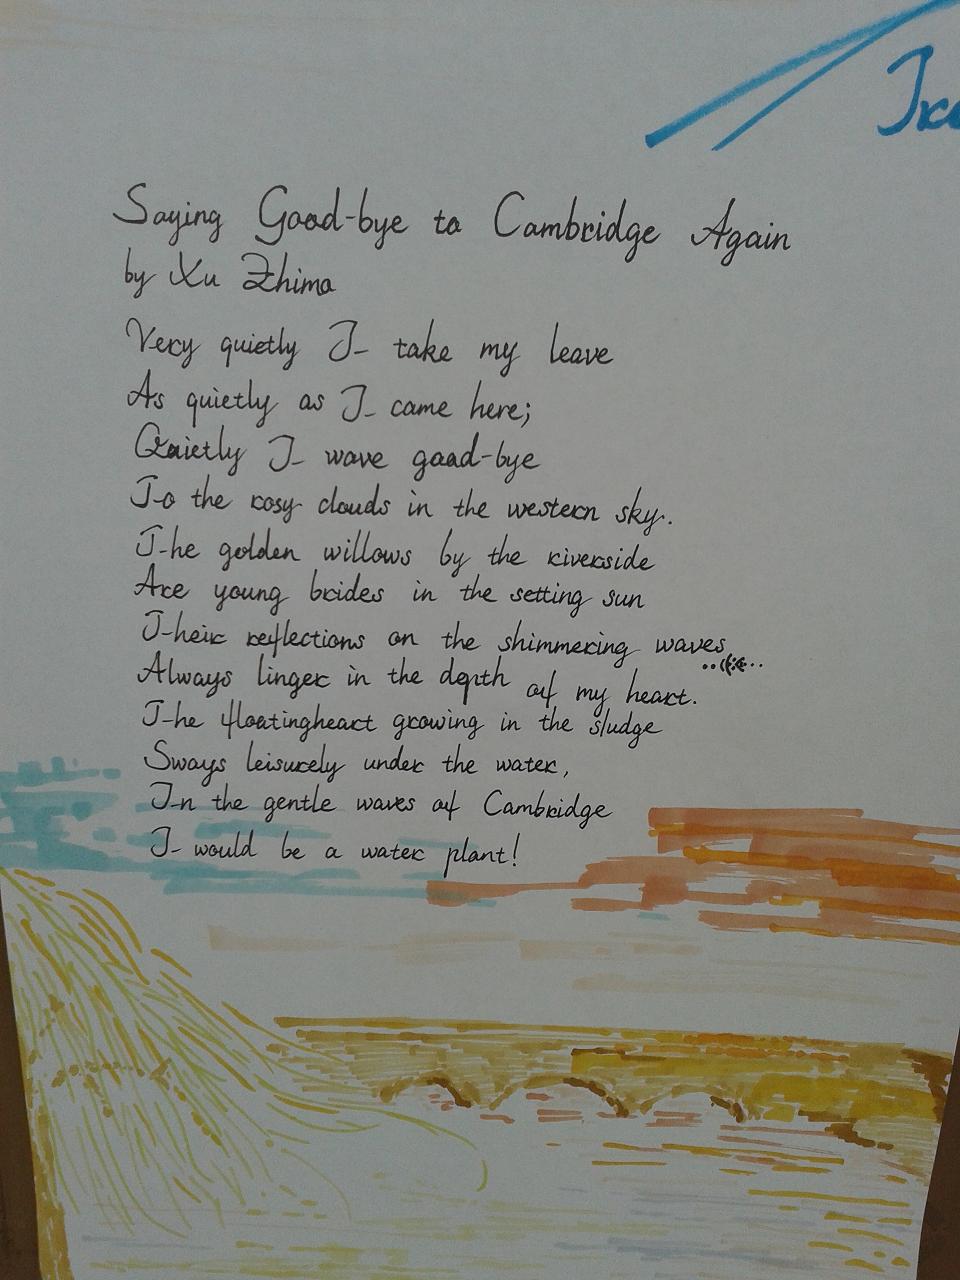 Saying Good-bye to Cambridge Again
by Xu Zhimo
Very quietly I take my leave
As quietly as I came here;
Quietly I wave good-bye
To the rosy clouds in the western sky.
The golden willows by the riverside
Are young brides in the setting sun
Their reflections on the shimmering waves
Always linger in the depth of my heart.
The floatingheart growing in the sludge
Sways leisurely under the water,
In the gentle waves of Cambridge
I would be a water plant!